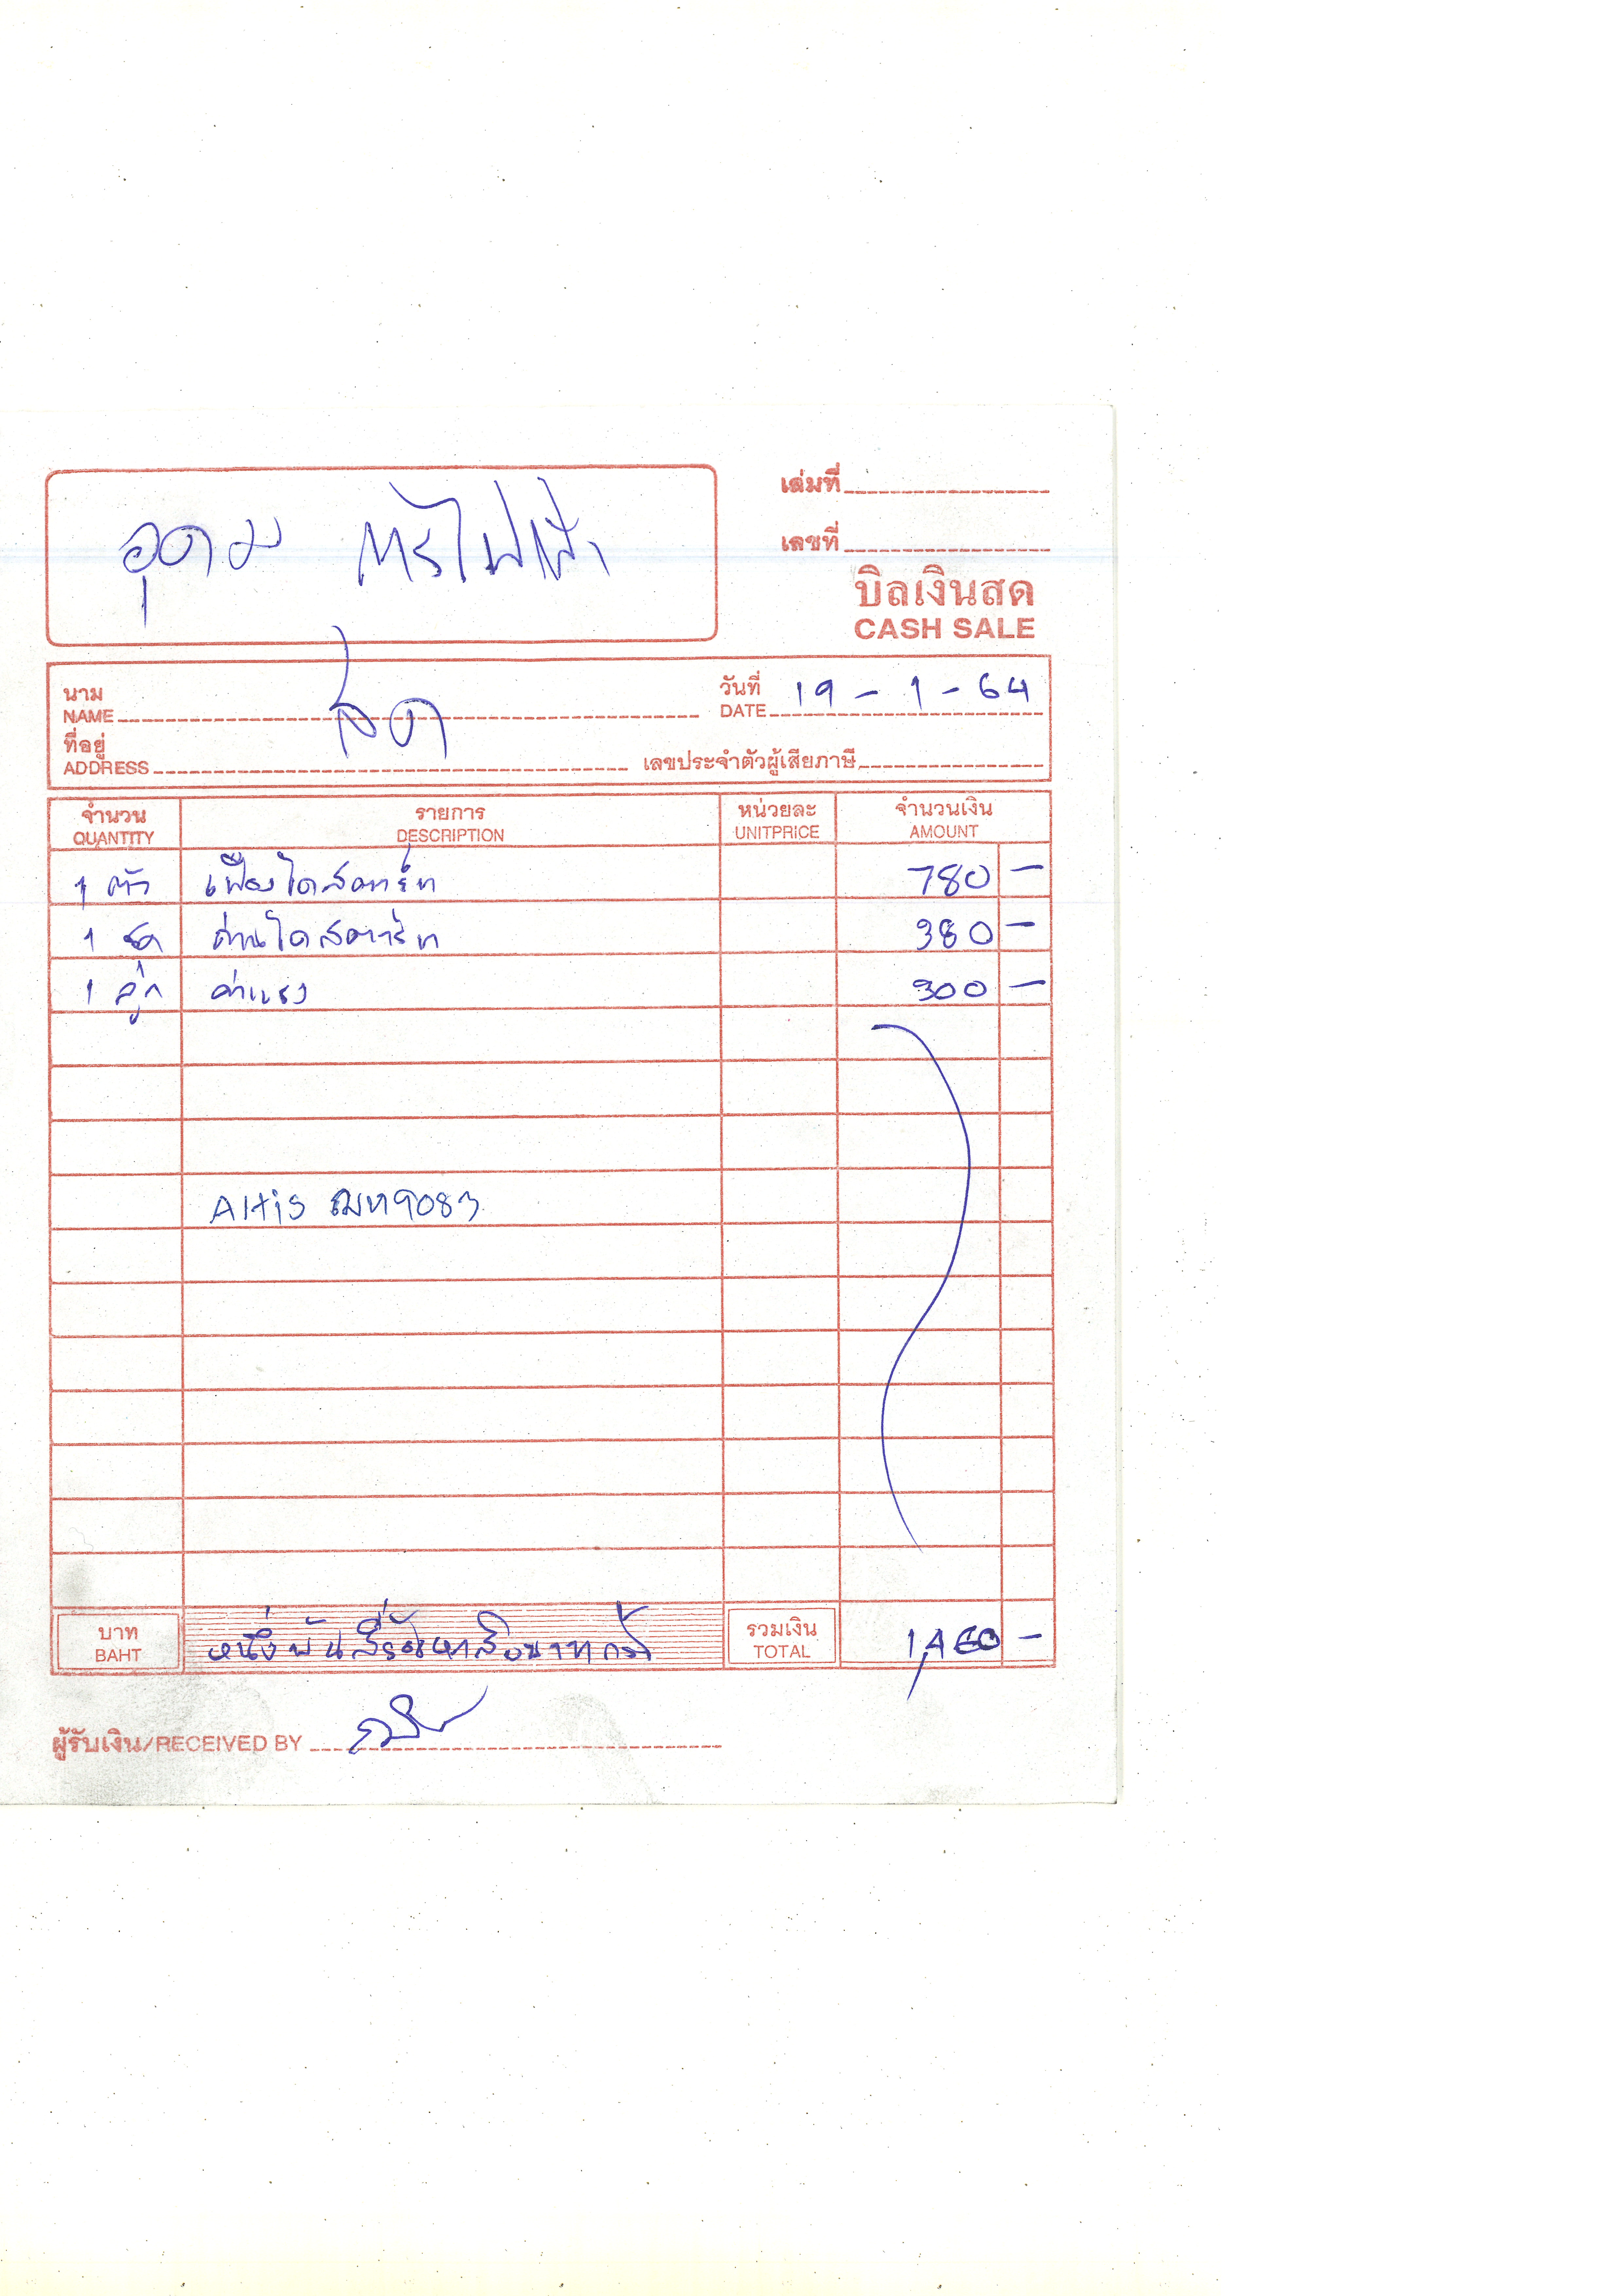 เล่มที่
อุดม การไฟฟ้า
เลขที่
บิลเงินสด
CASH SALE
นาม
NAME
สด
วันที่
DATE
19 - 1 - 64
ที่อยู่
ADDRESS
เลขประจำตัวผู้เสียภาษี
จำนวน รายการ หน่วยละ จำนวนเงิน
QUANTITY DESCRIPTION UNITPRICE AMOUNT
1 ตัว เฟืองไดสตาร์ท 780 -
1 ชุด ถ่านไดสตาร์ท 380 -
1 ค่าแรง 300 -
Altis ฌห9083
บาท หนึ่งพันสี่ร้อยหกสิบบาทถ้วน รวมเงิน 1,460 -
BAHT TOTAL
ผู้รับเงิน/RECEIVED BY